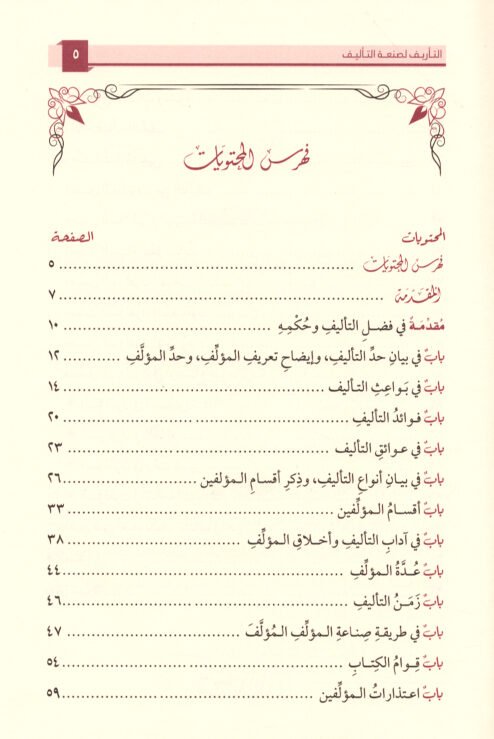 التأريف لصنعة التأليف ٥
فهرس المحتويات
المحتويات الصفحة
فهرس المحتويات ................ ٥
المقدمة ................ ٧
مُقدْمَةٌ في فضلِ التأليفِ وحُكْمِهِ ................ ١٠
بابٌ في بيانِ حدِّ التأليفِ، وإيضاحِ تعريفِ المؤلِّفِ، وحدِّ المؤلَّفِ ................ ١٢
بابٌ في بَواعِثِ التأليف ................ ١٤
بابٌ فوائدُ التأليفِ ................ ٢٠
بابٌ في عوائقِ التأليف ................ ٢٣
بابٌ في بيانِ أنواعِ التأليفِ، وذِكرِ أقسامِ المؤلفين ................ ٢٦
بابٌ أقسامُ المؤلِّفين ................ ٣٣
بابٌ في آدابِ التأليفِ وأخلاقِ المؤلِّفِ ................ ٣٨
بابٌ عُدَّةُ المؤلِّفِ ................ ٤٤
بابٌ زَمَنُ التأليفِ ................ ٤٦
بابٌ في طريقةِ صِناعةِ المؤلِّفِ المُؤلَّفَ ................ ٤٧
بابٌ قِوامُ الكِتابِ ................ ٥٤
بابٌ اعتذاراتُ المؤلِّفين ................ ٥٩